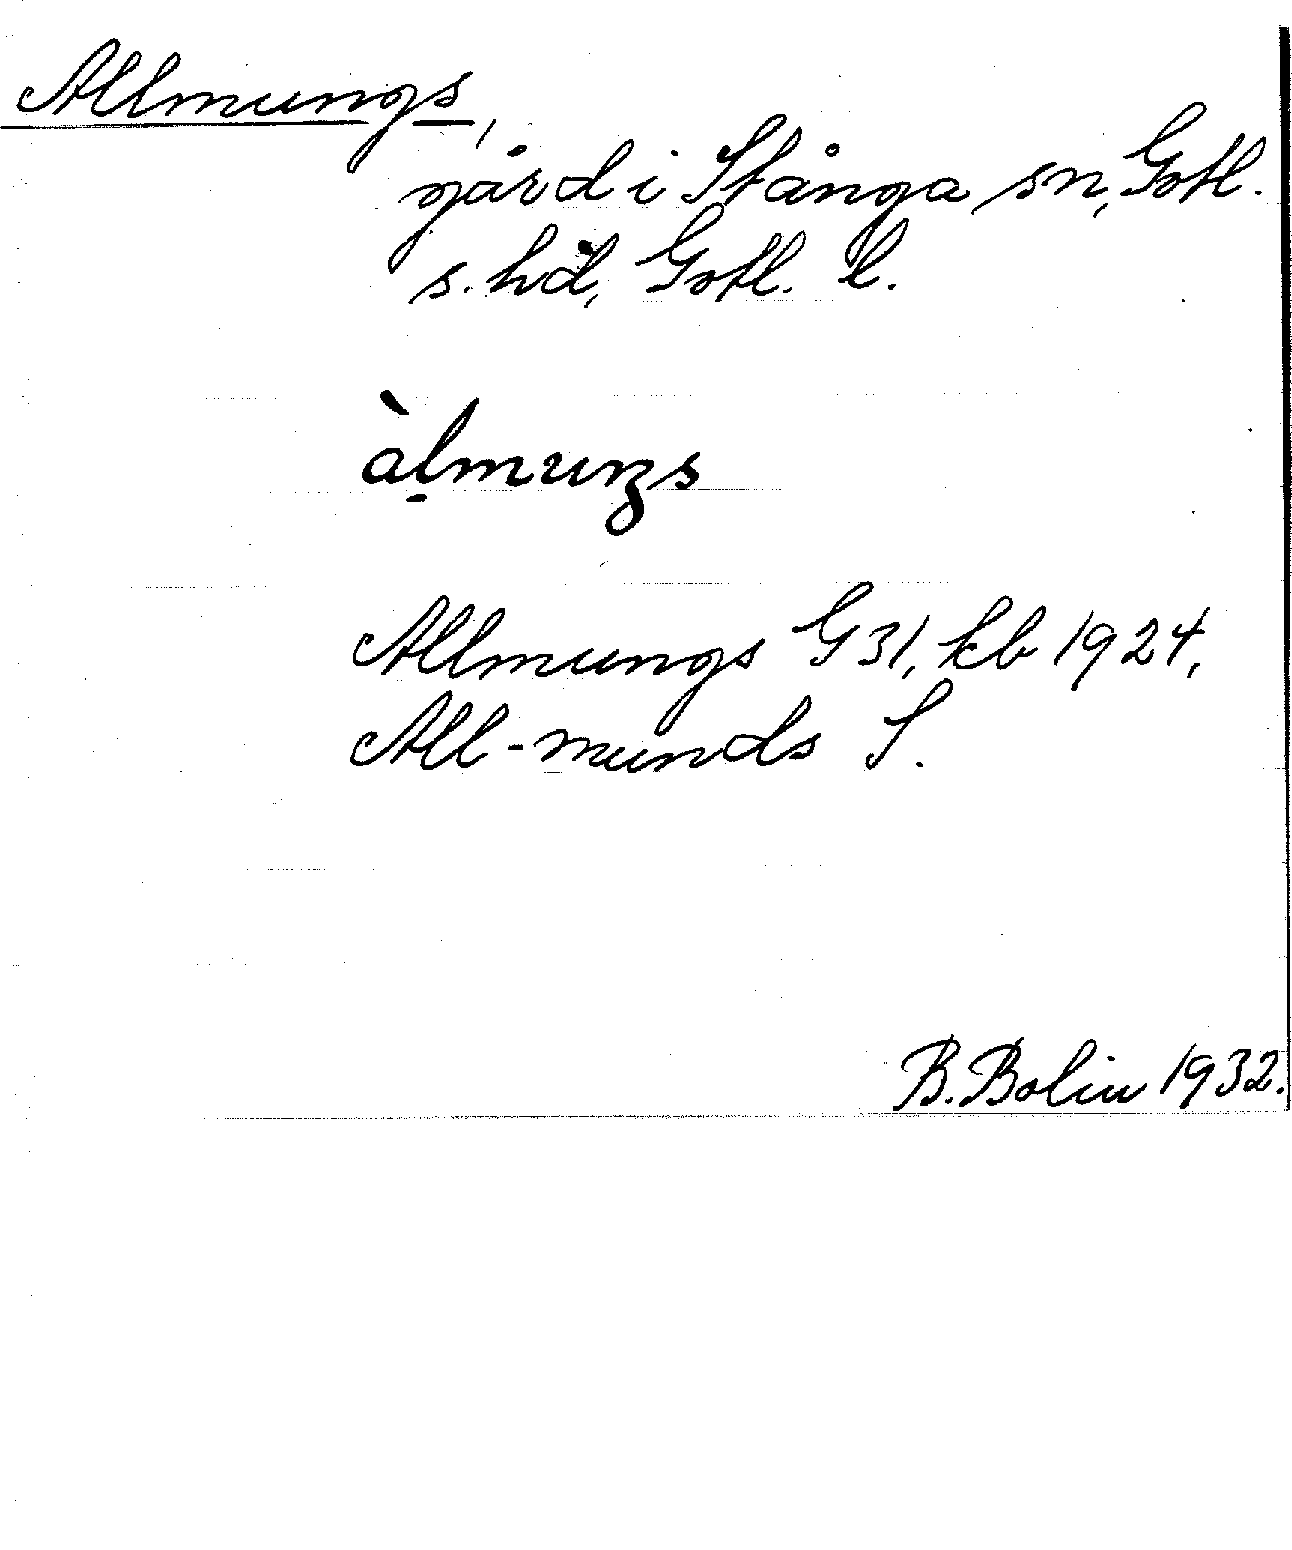 Allmungs,
gård i Stånga sn, Gotl.
s. hd, Gotl. l.
àl̠muŋs
Allmungs G 31, kb 1924,
All-munds S.
B. Bolin 1932.